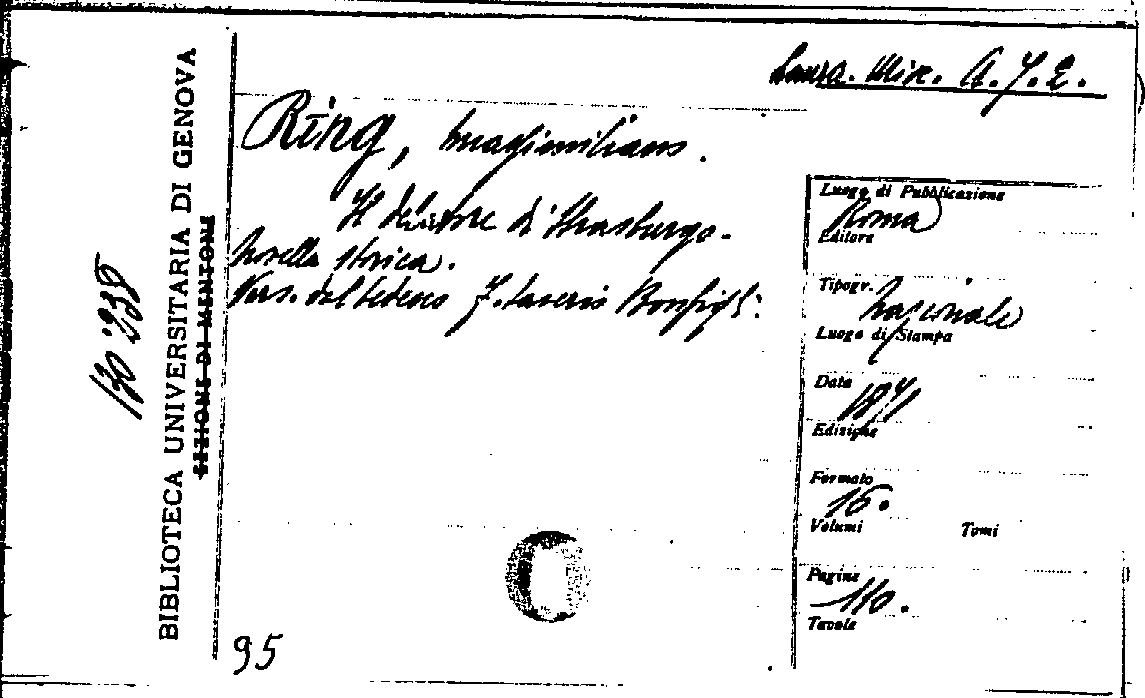 Laura. Mix. A. J. 2.
Ring, Massimiliano.
Il delatore di Strasburgo.
Novella storica.
Vers. dal tedesco F. Saverio Bonfigli.
Luogo di Pubblicazione
Roma
Editore
Tipogr.
Nazionale
Luogo di Stampa
Data
1871
Edizione
Formato
16.
Volumi Tomi
Pagine
110.
Tavole
BIBLIOTECA UNIVERSITARIA DI GENOVA
SEZIONE DI MENTONE
130'238
95